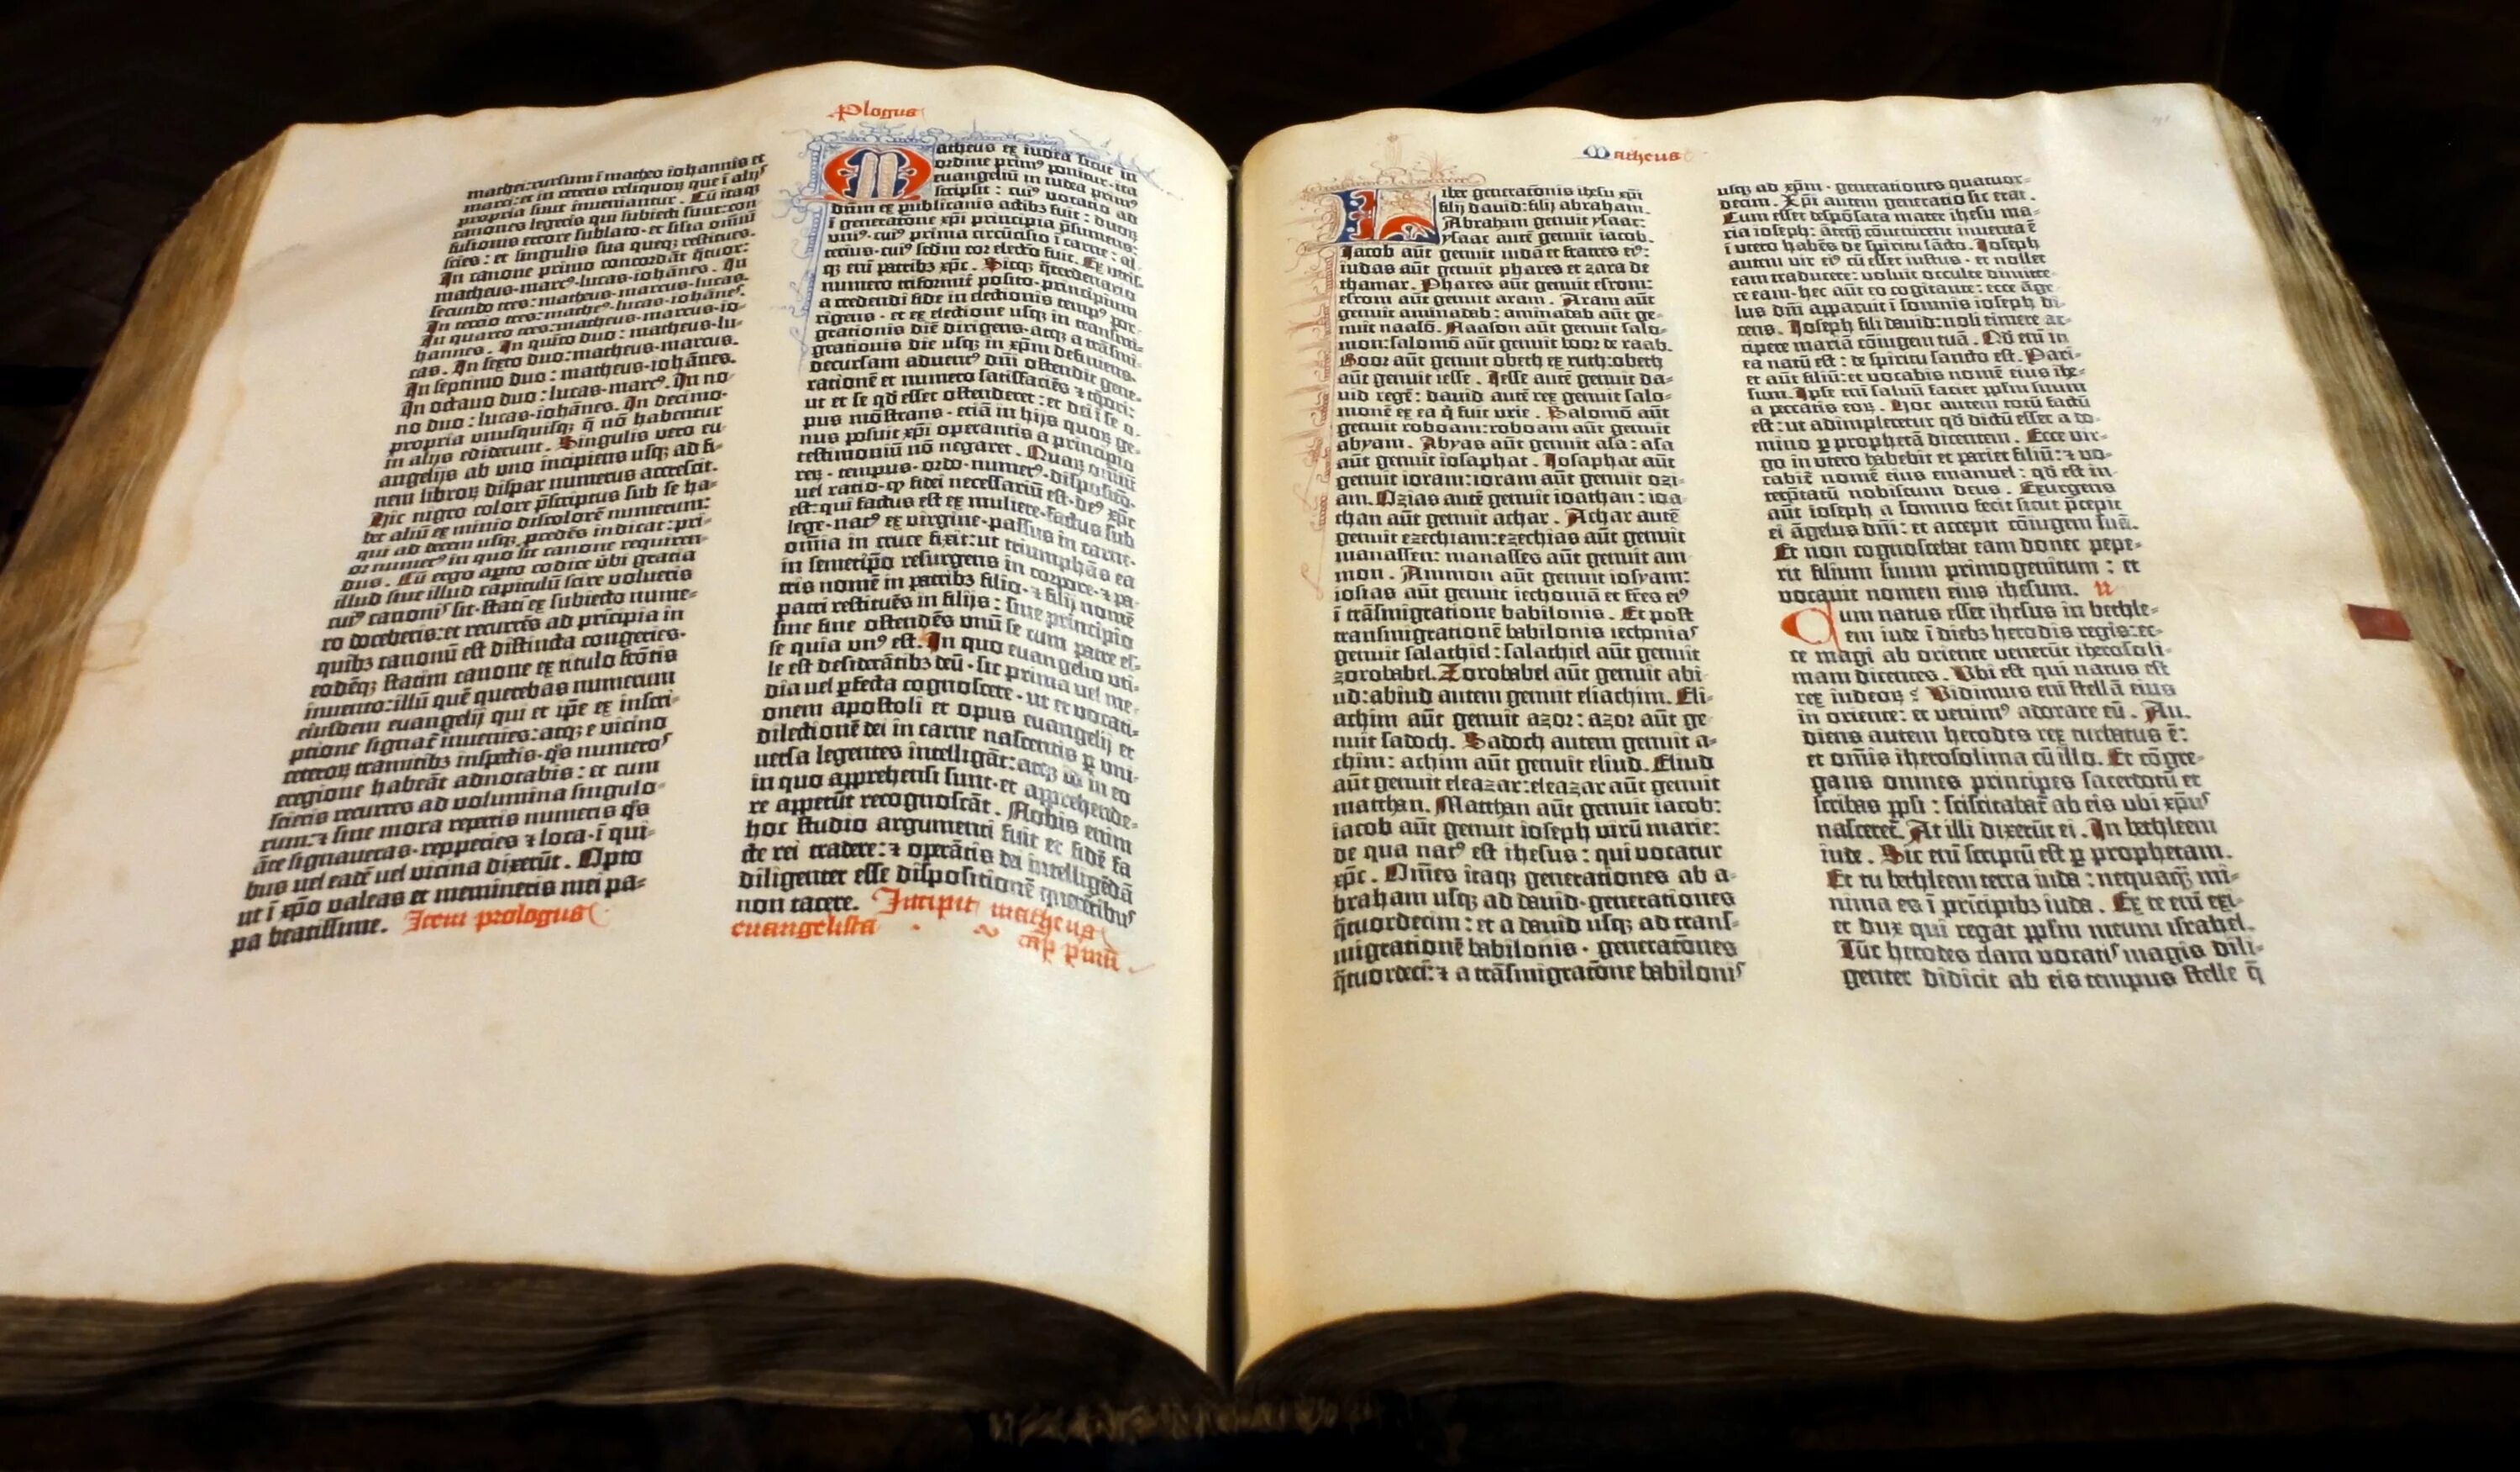 Plogus
mathei: rursum ĩ matheo iohannis et
marci: et in ceteris reliquoꝝ que ĩ alijs
propria sunt inveniantur . Cũ itaqꝫ
canones legeris qui subiecti sunt: con-
fusionis errore sublato · et silia omniũ
scies : et singulis sua queqꝫ restitues.
In canone primo concordãt q̃tuor:
matheus · marcꝰ · lucas · iohãnes. In
secundo tres: matheus · marcus · lucas.
In tercio tres: matheꝰ · lucas · iohãnes.
In quarto tres: matheus · marcus · io-
hannes. In quĩto duo: matheus · lu-
cas. In sexto duo: matheus · marcus.
In septimo duo: matheus · iohãnes.
In octauo duo: lucas · marcꝰ. In no-
no duo: lucas · iohãnes. In decimo·
propria vnusquisqꝫ q̃ nõ habentur
in alijs ediderunt. Singulis vero eu-
angelijs ab vno incipiens usqꝫ ad fi-
nem libroꝝ dispar numerus accrescit.
Hic nigro colore p̃scriptus sub se ha-
bet aliũ ex minio discolorẽ numerum:
qui ad decem usqꝫ p̱cedẽs indicat: pri-
or numerꝰ in quo sit canone requiren-
dus. Cũ ergo apto codice v̾bi gracia
illud siue illud capitulũ scire volueris
cuiꝰ canonis sit · stati ex subiecto nume-
ro doceberis: et recurrẽs ad pricipia in
quibꝫ canonũ est distincta congeries·
eodẽqꝫ statim canone ex titulo frõtis
inuento: illũ quẽ querebas numerum
eiusdem euangelij qui et ip̃e ex inscri-
ptione signat̃ inuenies: atqꝫ e vicino
ceteroꝝ tramitibꝫ inspectis · q̃s numeros
eregione habeãt adnotabis: et cum
scieris recurres ad volumina singulo-
rum: ⁊ sine mora repertis numeris q̃s
ãte signaueras · repperies ⁊ loca · ĩ qui-
bus uel eadẽ uel vicina dixerũt. Opto
ut ĩ xp̃o valeas et memineris mei pa-
pa beatissime. Item prologus
Matheus ex iudea sicut in
ordine primꝰ ponitur · ita
euangeliũ in iudea primꝰ
scripsit : cuiꝰ vocatio ad
dũm ex publicanis actibꝫ fuit : duoꝝ
ĩ generatõne xp̃i principia p̃sumens:
vniꝰ · cuiꝰ prima circũcisio ĩ carne : al-
terius · cuiꝰ scdm cor electio fuit. Ex utris-
qꝫ eni patribꝫ xp̃c. Sicqꝫ q̃terdenario
numero triformit̃ posito · principium
a credendi fide in electionis tempꝰ por-
rigens · et ex electione usqꝫ in transmi-
grationis diẽ dirigens · atqꝫ a trãsmi-
grationis die usqꝫ in xp̃m definiens·
decursam aduentꝰ dñi ostendit gene-
rationẽ et numero satisfaciẽs ⁊ tẽpori:
ut et se qd̃ esset ostenderet: et dei ĩ se o-
pus mõstrans · eciã in hijs quoꝝ ge-
nus posuit xp̃i operantis a principio
testimoniũ nõ negaret. Quaꝝ omniũ
reꝝ · tempus · ordo · numerꝰ · disposicõ·
uel ratio · qꝫ fidei necessariũ est · deꝰ xp̃c
est: qui factus est ex muliere · factus sub
lege · natꝰ ex virgine · passus in carne·
omĩa in cruce fixit: ut triumphãs ea
in semetip̃o resurgens in corpore · ⁊ pa-
tris nomẽ in patribꝫ filio · ⁊ filij nomẽ
patri restituẽs in filijs: sine principio
sine fine ostendẽs vnũ se cum patre es-
se quia vnꝰ est. In quo euangelio uti-
le est desiderãtibꝫ deũ · sic prima uel me-
dia uel p̱fecta cognoscere · ut et vocati-
onem apostoli et opus euangelij et
dilectionẽ dei in carne nascentis p̱ vni-
uersa legentes intelligãt: atqꝫ id in eo
in quo apprehensi sunt · et apprehende-
re appetũt recognoscãt. Nobis enim
hoc studio argumenti fuit et fidẽ fa-
cte rei tradere: ⁊ operãtis dei intelligẽdã
diligenter esse dispositionẽ querẽtibus
non tacere. Incipit matheus
euangelista. cap̃ pmũ
Matheus
Liber generatõnis ihesu xp̃i
filij dauid: filij abraham.
Abraham genuit ysaac:
ysaac autẽ genuit iacob.
Iacob aũt genuit iudã et fratres eiꝰ:
iudas aũt genuit phares et zara de
thamar. Phares aũt genuit esrom:
esrom aũt genuit aram. Aram aũt
genuit aminadab: aminadab aũt ge-
nuit naasõ. Naason aũt genuit salo-
mon: salomõ aũt genuit booz de raab.
Booz aũt genuit obeth ex ruth: obeth
aũt genuit iesse. Iesse autẽ genuit da-
uid regẽ: dauid autẽ rex genuit salo-
monẽ ex ea q̃ fuit vrie. Salomõ aũt
genuit roboam: roboam aũt genuit
abyam. Abyas aũt genuit asa: asa
aũt genuit iosaphat. Iosaphat aũt
genuit ioram: ioram aũt genuit ozi-
am. Ozias autẽ genuit ioathan: ioa-
than aũt genuit achar. Achar autẽ
genuit ezechiam: ezechias aũt genuit
manassen: manasses aũt genuit am-
mon. Ammon aũt genuit iosyam:
iosias aũt genuit iechoniã et fr̃es eiꝰ
ĩ trãsmigratione babilonis. Et post
transmigrationẽ babilonis iechonias
genuit salachiel: salachiel aũt genuit
zorobabel. Zorobabel aũt genuit abi-
ud: abiud autem genuit eliachim. Eli-
achim aũt genuit azor: azor aũt ge-
nuit sadoch. Sadoch autem genuit a-
chim: achim aũt genuit eliud. Eliud
aũt genuit eleazar: eleazar aũt genuit
matthan. Matthan aũt genuit iacob:
iacob aũt genuit ioseph virũ marie:
de qua natꝰ est ihesus: qui vocatur
xp̃c. Om̃es itaqꝫ generationes ab a-
braham usqꝫ ad dauid · generationes
q̃tuordecim: et a dauid usqꝫ ad trans-
migrationẽ babilonis · generatõnes
q̃tuordeci: ⁊ a trãsmigratõne babilonis
usqꝫ ad xp̃m · generationes quatuor-
decim. Xp̃i autem generatio sic erat.
Cum esset despõsata mater ihesu ma-
ria ioseph: ãteqꝫ cõuenirent inuenta ẽ
ĩ utero habẽs de spiritu sãcto. Ioseph
autem vir eiꝰ cũ esset iustus · et nollet
eam traducere: voluit occulte dimitte-
re eam · hec aũt eo cogitante: ecce ãge-
lus dñi apparuit ĩ somnis ioseph di-
cens. Ioseph fili dauid: noli timere ac-
cipere mariã cõiugem tuã. Qd̃ eni in
ea natũ est: de spiritu sancto est. Pari-
et aũt filiũ: et vocabis nomẽ eius ihe-
sum. Ipse eni saluũ faciet pp̃lm suum
a peccatis eoꝝ. Hoc autem totũ factũ
est: ut adimpleretur qd̃ dictũ esset a do-
mino p̱ prophetã dicentem. Ecce vir-
go in utero habebit et pariet filiũ: ⁊ vo-
cabit̃ nomẽ eius emanuel: qd̃ est in-
terp̃tatũ nobiscum deus. Exurgens
aũt ioseph a somno fecit sicut p̃cepit
ei ãgelus dñi: et accepit cõiugem suã.
Et non cognoscebat eam donec pepe-
rit filium suum primogenitum: et
vocauit nomen eius ihesum. II
Cum natus esset ihesus in bethle-
em iude ĩ diebꝫ herodis regis: ec-
ce magi ab oriente venerũt iherosoli-
mam dicentes. Vbi est qui natus est
rex iudeoꝝ? Vidimus eni stellã eius
in oriente: et venimꝰ adorare eũ. Au-
diens autem herodes rex turbatus ẽ:
et om̃is iherosolima cũ illo. Et cõgre-
gans omnes principes sacerdotũ et
scribas pp̃li: sciscitabat̃ ab eis ubi xp̃us
nasceret̃. At illi dixerũt ei. In bethleem
iude. Sic eni scriptũ est p̱ prophetam.
Et tu bethleem terra iuda: nequaq̃ꝫ mi-
nima es ĩ pricipibꝫ iuda. Ex te eni exi-
et dux qui regat pp̃lm meum israhel.
Tũc herodes clam vocatis magis dili-
genter didicit ab eis tempus stelle q̃